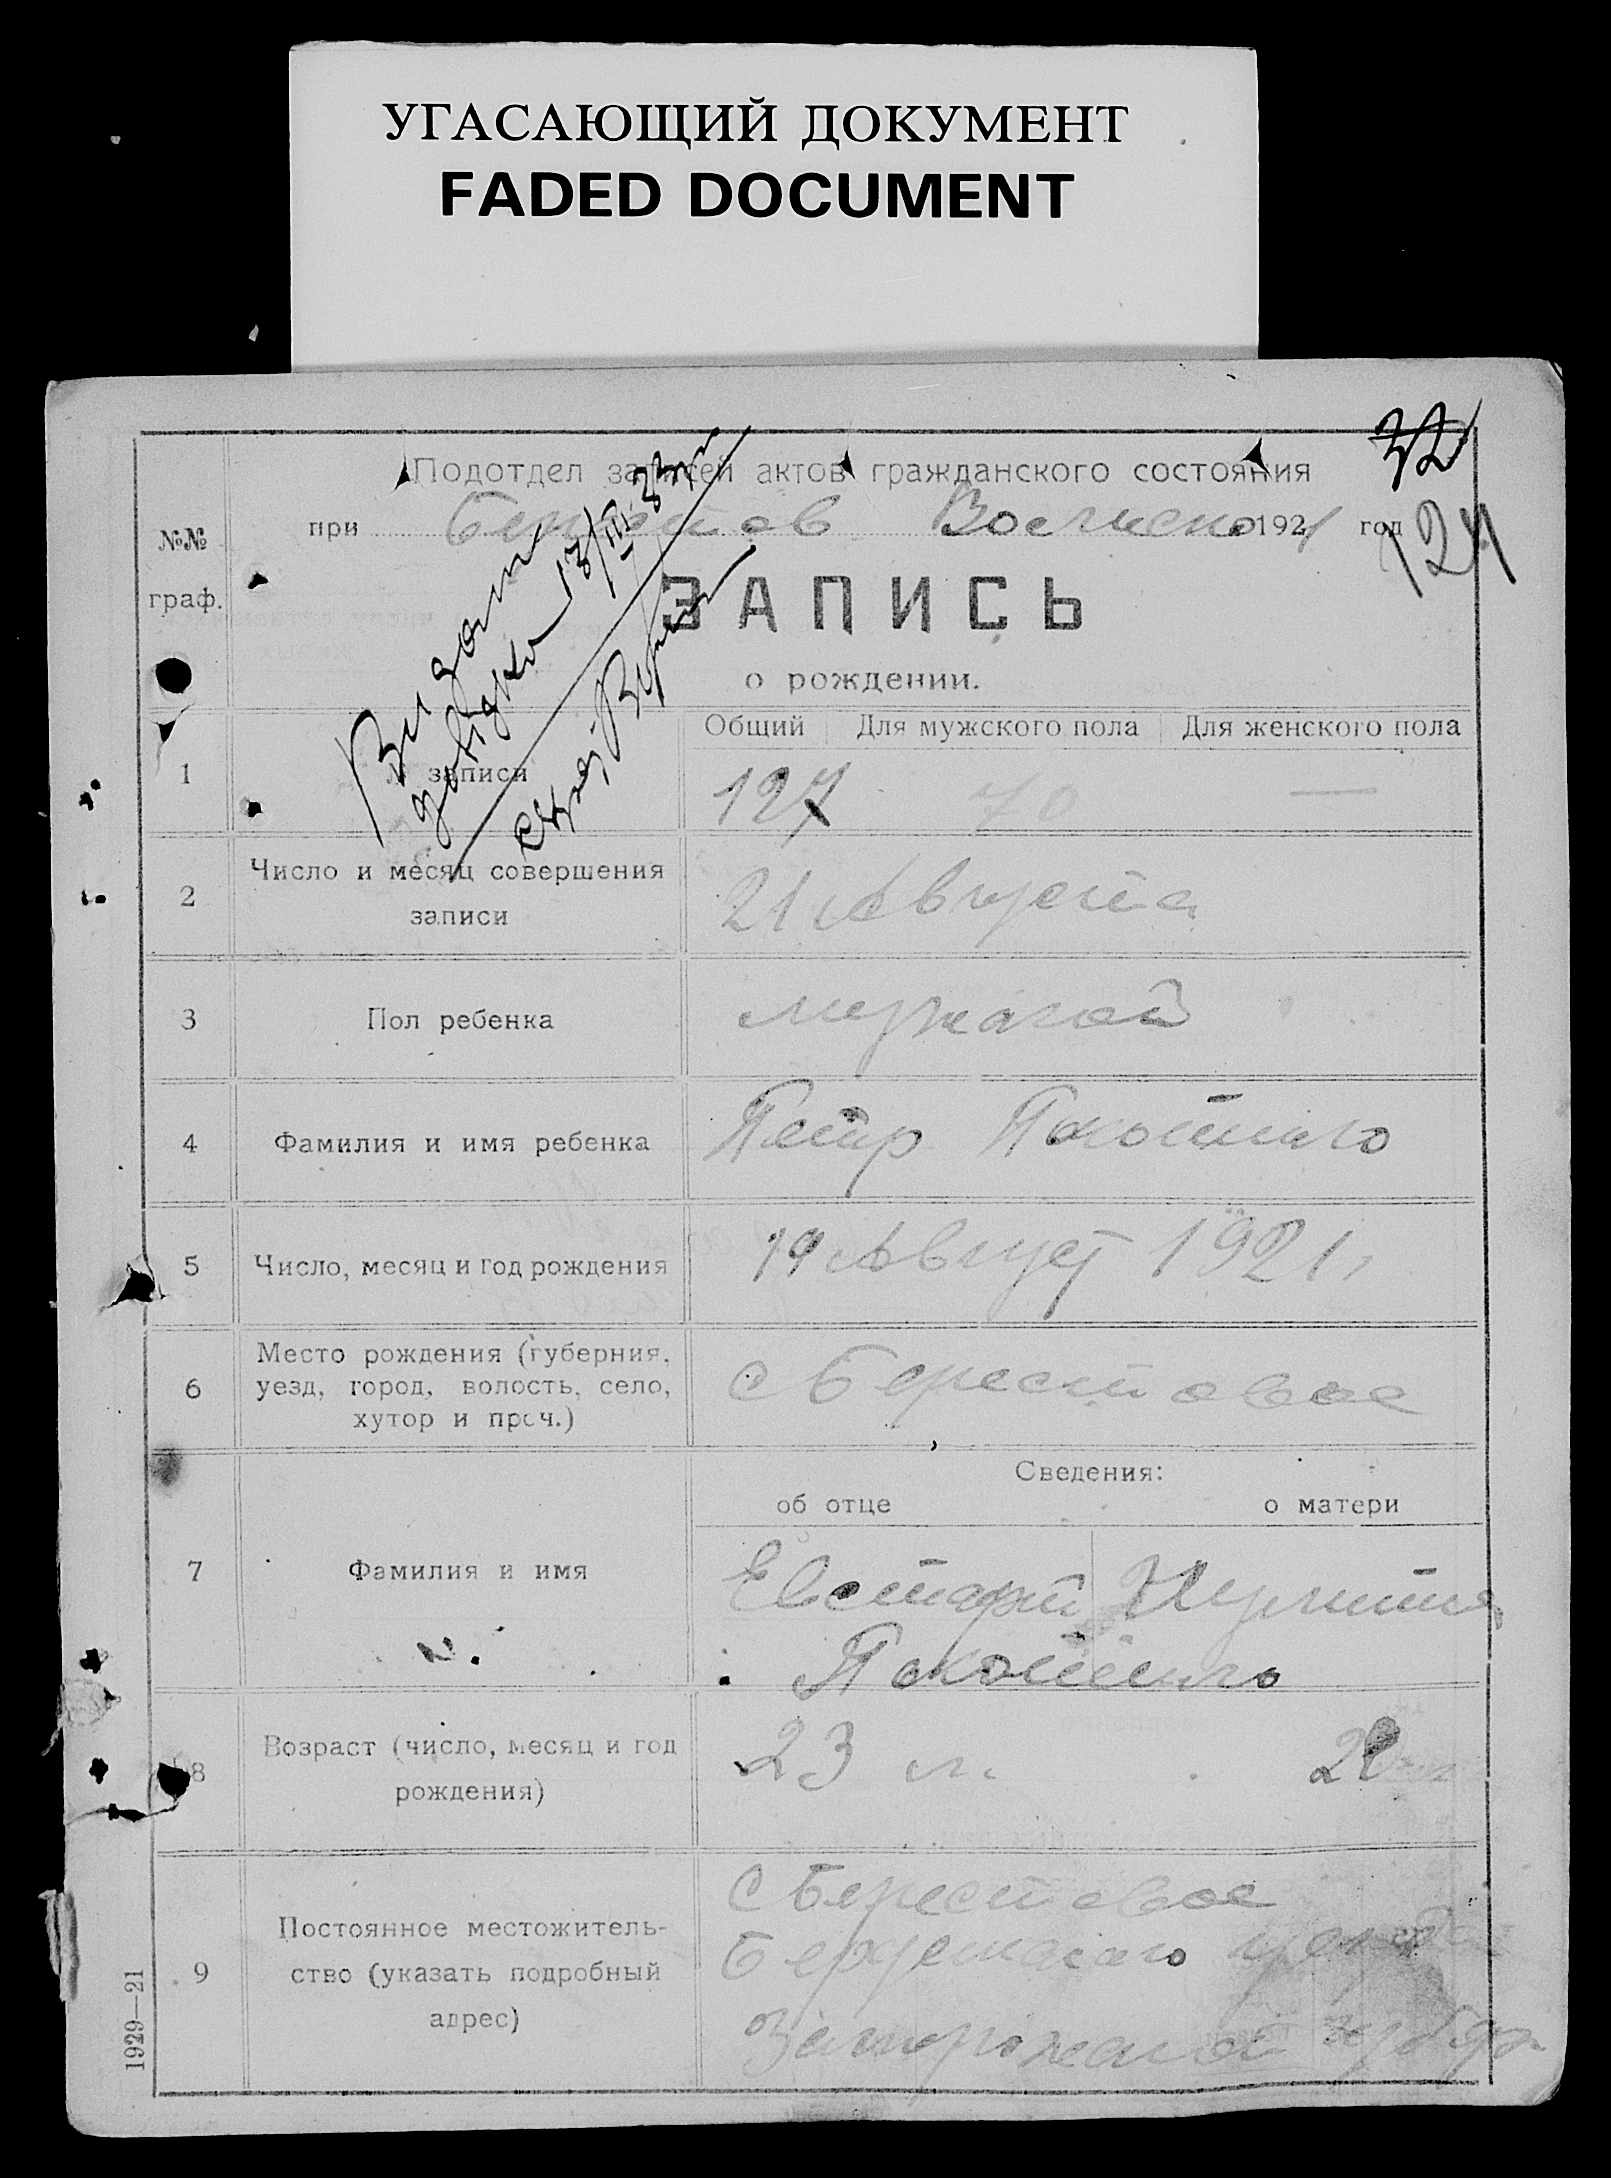 УГАСАЮЩИЙ ДОКУМЕНТ
FADED DOCUMENT
Подотдел записей актов гражданского состояния
при 1921 год
124
№№ граф.
ЗАПИСЬ
о рождении.
Видано
довідка 13/III 33
Общий Для мужского пола Для женского пола
1 № записи 127 70 —
2 Число и месяц совершения
записи 21 Августа
3 Пол ребенка мужской
4 Фамилия и имя ребенка Петр
5 Число, месяц и год рождения 19 Август 1921
6 Место рождения (губерния,
уезд, город, волость, село,
хутор и проч.) с Берестовое
Сведения:
об отце о матери
7 Фамилия и имя Евстафи
8 Возраст (число, месяц и год
рождения) 23 л.
9 Постоянное местожитель-
ство (указать подробный
адрес) с Берестовое
Запорожской
1929—21